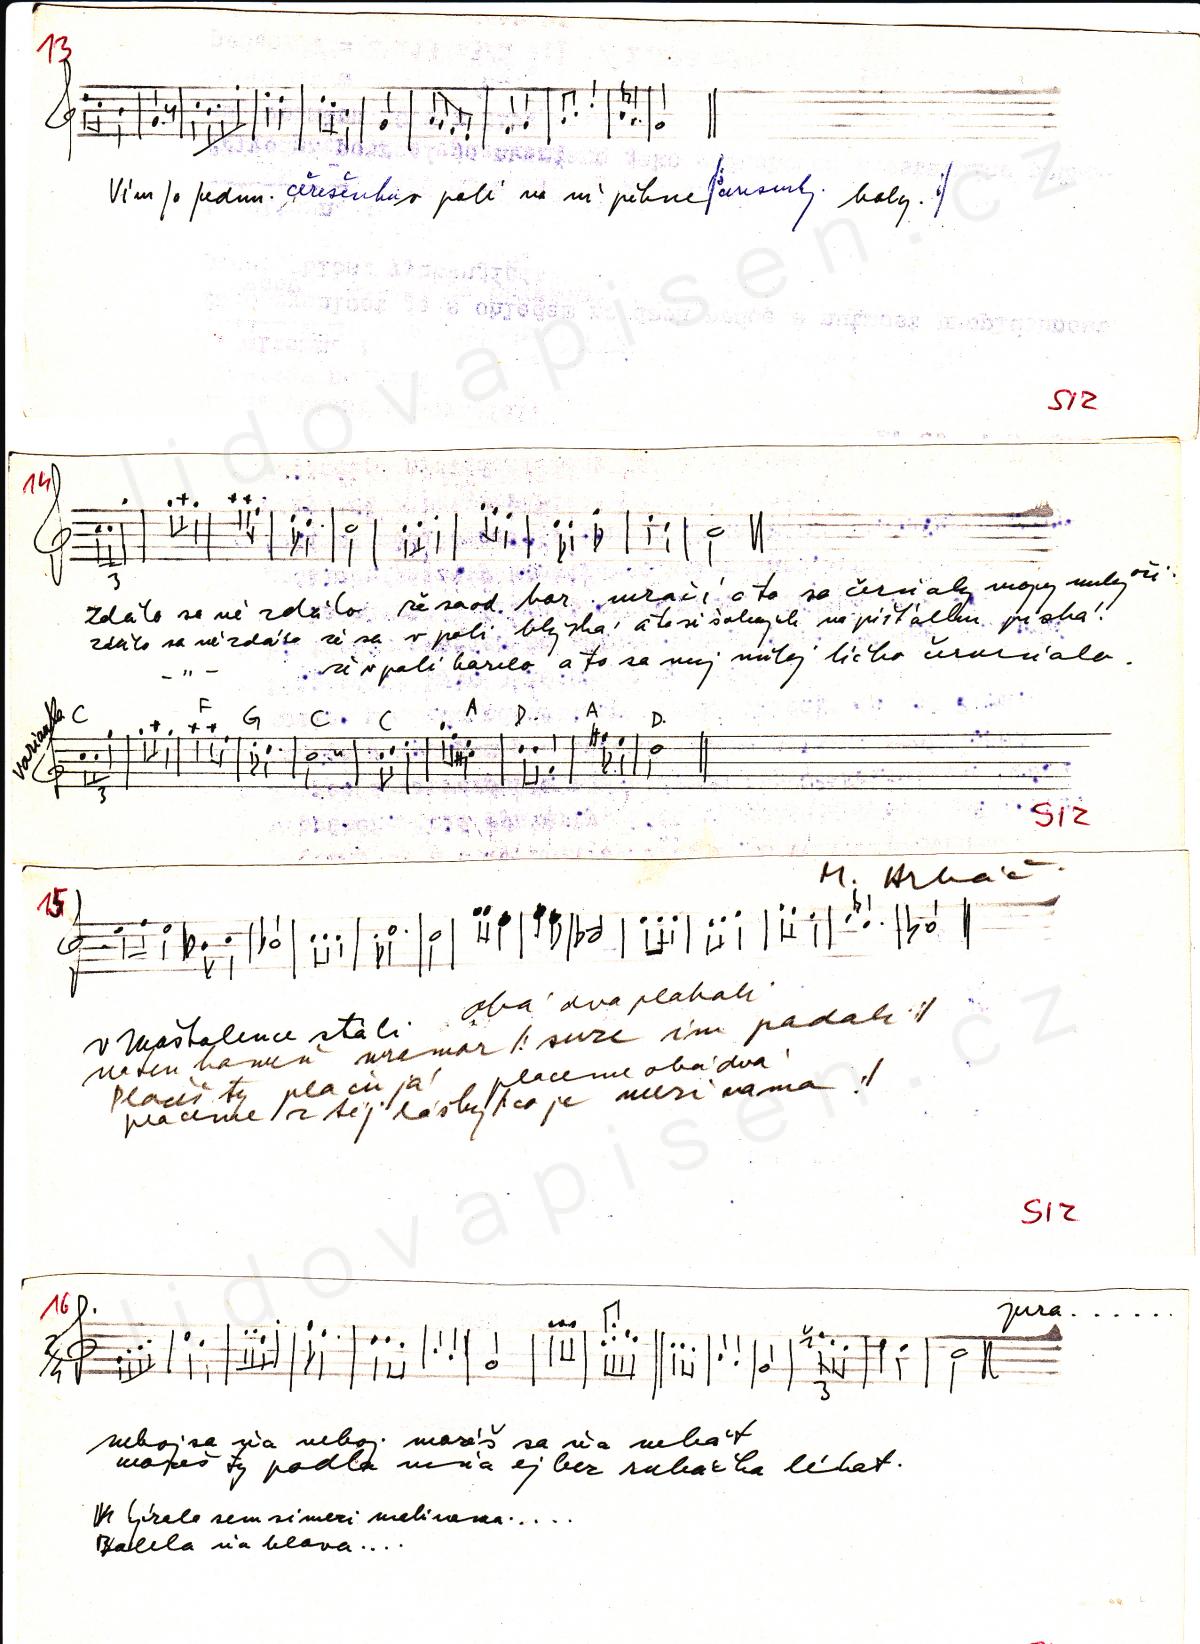 13
Vím jo jednu čerešenku v poli na ní pěkné /: čerešenky boly. :/
S12
14
3
zdálo sa ně zdálo že sa od hor mračí a to sa černaly mojej milej oči.
zdálo sa ně zdálo že sa v poli blýská a to si šohajek na píšťalku píská!
- " - že v poli horelo a to sa mej milej líčko červeňalo.
varianta C F G C C A D. A D.
3
S12
M. Hrbáč
15
v maštalence stáli obá dva plakali
na ten kameň mramor /: slze im padali :/
Plačeš ty plaču já plačeme obá dvá
plačeme z tej lásky /: co je mezi nama :/
S12
16
jura......
2/4
3
neboj sa ňa neboj nemáš sa ňa nebát
možeš ty podla mňa ej bez rubáčka léhat.
sem si mezi malinama.....
Bolela ňa hlava....